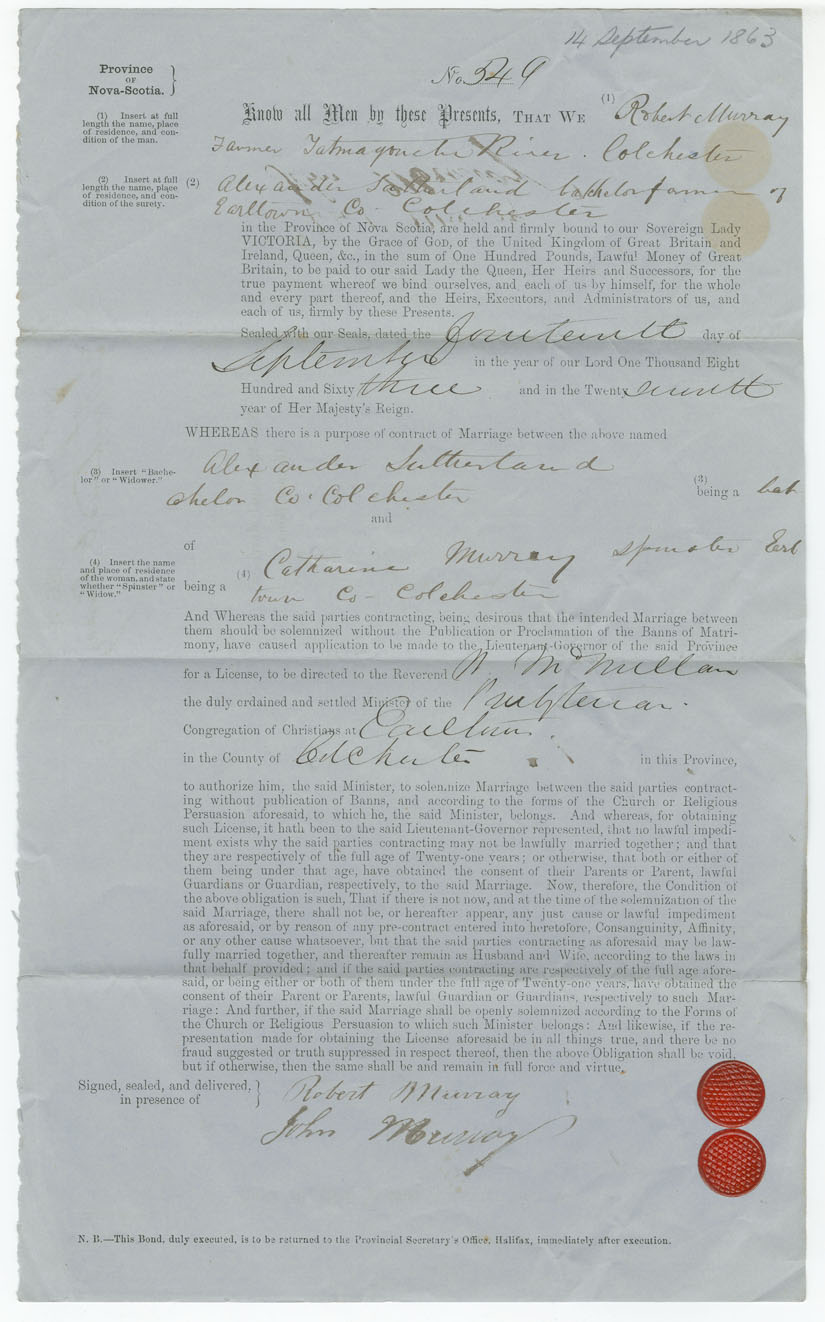 14 September 1863
Province
OF
Nova-Scotia.
No. 549
(1) Insert at full
length the name, place
of residence, and con-
dition of the man.
Know all Men by these Presents, THAT WE (1) Robert Murray
Farmer Tatmagouche River. Colchester
(2) Insert at full
length the name, place
of residence, and con-
dition of the surety.
(2) Alexander Sutherland bachelor farmer of
Earltown Co Colchester
in the Province of Nova Scotia, are held and firmly bound to our Sovereign Lady
VICTORIA, by the Grace of GOD, of the United Kingdom of Great Britain and
Ireland, Queen, &c., in the sum of One Hundred Pounds, Lawful Money of Great
Britain, to be paid to our said Lady the Queen, Her Heirs and Successors, for the
true payment whereof we bind ourselves, and each of us by himself, for the whole
and every part thereof, and the Heirs, Executors, and Administrators of us, and
each of us, firmly by these Presents.
Sealed with our Seals, dated the fourteenth day of
September in the year of our Lord One Thousand Eight
Hundred and Sixty three and in the Twenty seventh
year of Her Majesty's Reign.
WHEREAS there is a purpose of contract of Marriage between the above named
Alexander Sutherland
(3) Insert "Bache-
lor" or "Widower."
(3)
being a bat
chelor Co. Colchester
and
of
(4) Insert the name
and place of residence
of the woman, and state
whether "Spinster" or
"Widow."
(4) Catharine Murray spinster Earl
being a town Co - Colchester
And Whereas the said parties contracting, being desirous that the intended Marriage between
them should be solemnized without the Publication or Proclamation of the Banns of Matri-
mony, have caused application to be made to the Lieutenant-Governor of the said Province
for a License, to be directed to the Reverend W McMillan
the duly ordained and settled Minister of the Presbyterian.
Congregation of Christians at Earltown.
in the County of Colchester in this Province,
to authorize him, the said Minister, to solemnize Marriage between the said parties contract-
ing without publication of Banns, and according to the forms of the Church or Religious
Persuasion aforesaid, to which he, the said Minister, belongs. And whereas, for obtaining
such License, it hath been to the said Lieutenant-Governor represented, that no lawful impedi-
ment exists why the said parties contracting may not be lawfully married together; and that
they are respectively of the full age of Twenty-one years; or otherwise, that both or either of
them being under that age, have obtained the consent of their Parents or Parent, lawful
Guardians or Guardian, respectively, to the said Marriage. Now, therefore, the Condition of
the above obligation is such, That if there is not now, and at the time of the solemnization of the
said Marriage, there shall not be, or hereafter appear, any just cause or lawful impediment
as aforesaid, or by reason of any pre-contract entered into heretofore, Consanguinity, Affinity,
or any other cause whatsoever, but that the said parties contracting as aforesaid may be law-
fully married together, and thereafter remain as Husband and Wife, according to the laws in
that behalf provided; and if the said parties contracting are respectively of the full age afore-
said, or being either or both of them under the full age of Twenty-one years, have obtained the
consent of their Parent or Parents, lawful Guardian or Guardians, respectively to such Mar-
riage: And further, if the said Marriage shall be openly solemnized according to the Forms of
the Church or Religious Persuasion to which such Minister belongs: And likewise, if the re-
presentation made for obtaining the License aforesaid be in all things true, and there be no
fraud suggested or truth suppressed in respect thereof, then the above Obligation shall be void,
but if otherwise, then the same shall be and remain in full force and virtue.
Signed, sealed, and delivered,
in presence of
Robert Murray
John Murray
N. B.—This Bond, duly executed, is to be returned to the Provincial Secretary's Office, Halifax, immediately after execution.